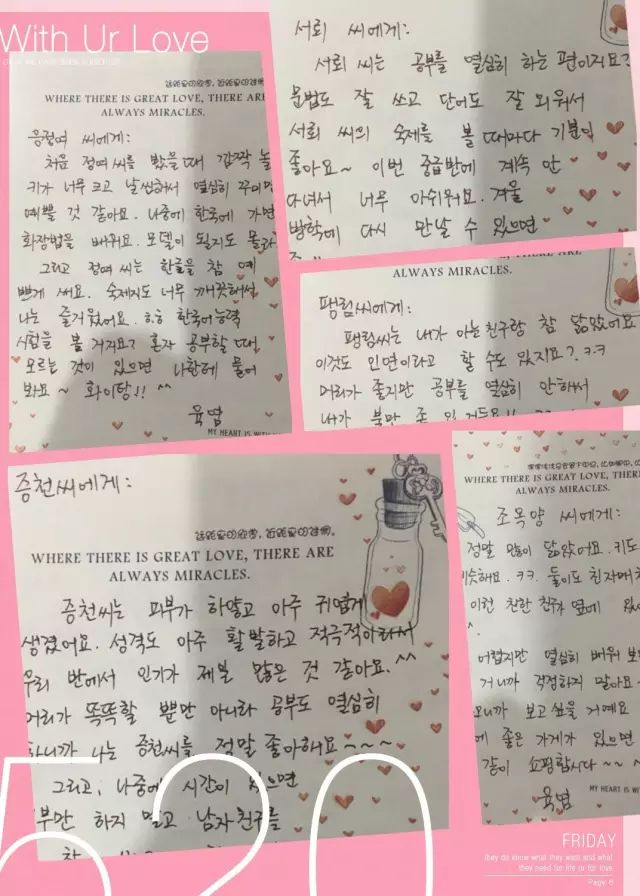 With Ur Love
WHERE THERE IS GREAT LOVE, THERE ARE
ALWAYS MIRACLES.
응정여 씨에게:
처음 정여 씨를 봤을 때 깜짝 놀
키가 너무 크고 날씬해서 열심히 꾸미면
예쁠 것 같아요. 나중에 한국에 가면
화장법을 배워요. 모델이 될지도 몰라
그리고 정여 씨는 한글을 참 예
쁘게 써요. 숙제지도 너무 깨끗해서
나는 즐거웠어요. ㅎㅎ 한국어능력
시험을 볼 거지요? 혼자 공부할 때
모르는 것이 있으면 나한테 물어
봐요 ~ 화이팅!! ^^
육염
MY HEART IS WITH
서뢰 씨에게:
서뢰 씨는 공부를 열심히 하는 편이지요?
문법도 잘 쓰고 단어도 잘 외워서
서뢰 씨의 숙제를 볼 때마다 기분이
좋아요~ 이번 중급반에 계속 안
다녀서 너무 아쉬워요. 겨울
방학에 다시 만날 수 있으면
ALWAYS MIRACLES.
팽림씨에게:
팽림씨는 내가 아는 친구랑 참 닮았어요
이것도 인연이라고 할 수도 있지요? ㅋㅋ
머리가 좋지만 공부를 열심히 안해서
내가 불만 좀 있거든요!!
증천씨에게:
WHERE THERE IS GREAT LOVE, THERE ARE
ALWAYS MIRACLES.
증천씨는 피부가 하얗고 아주 귀엽게
생겼어요. 성격도 아주 활발하고 적극적이라서
우리 반에서 인기가 제일 많은 것 같아요. ^^
머리가 똑똑할 뿐만 아니라 공부도 열심히
하니까 나는 증천씨를 정말 좋아해요~~~
그리고, 나중에 시간이 있으면
부만 하지 말고 남자친구를
WHERE THERE IS GREAT LOVE, THERE
ALWAYS MIRACLES.
조목양 씨에게:
정말 많이 닮았어요. 키도
비슷해요. ㅋㅋ. 둘이도 친자매처
이런 친한 친구가 옆에 있
어렵지만 열심히 배워 보
거니까 걱정하지 말아요.
오니까 보고 싶을 거예요
에 좋은 가게가 있으면
같이 쇼핑합시다 ~~
육염
MY HEART IS WI
520
FRIDAY
they do know what they want and what
they need for life or for love
Page. 6